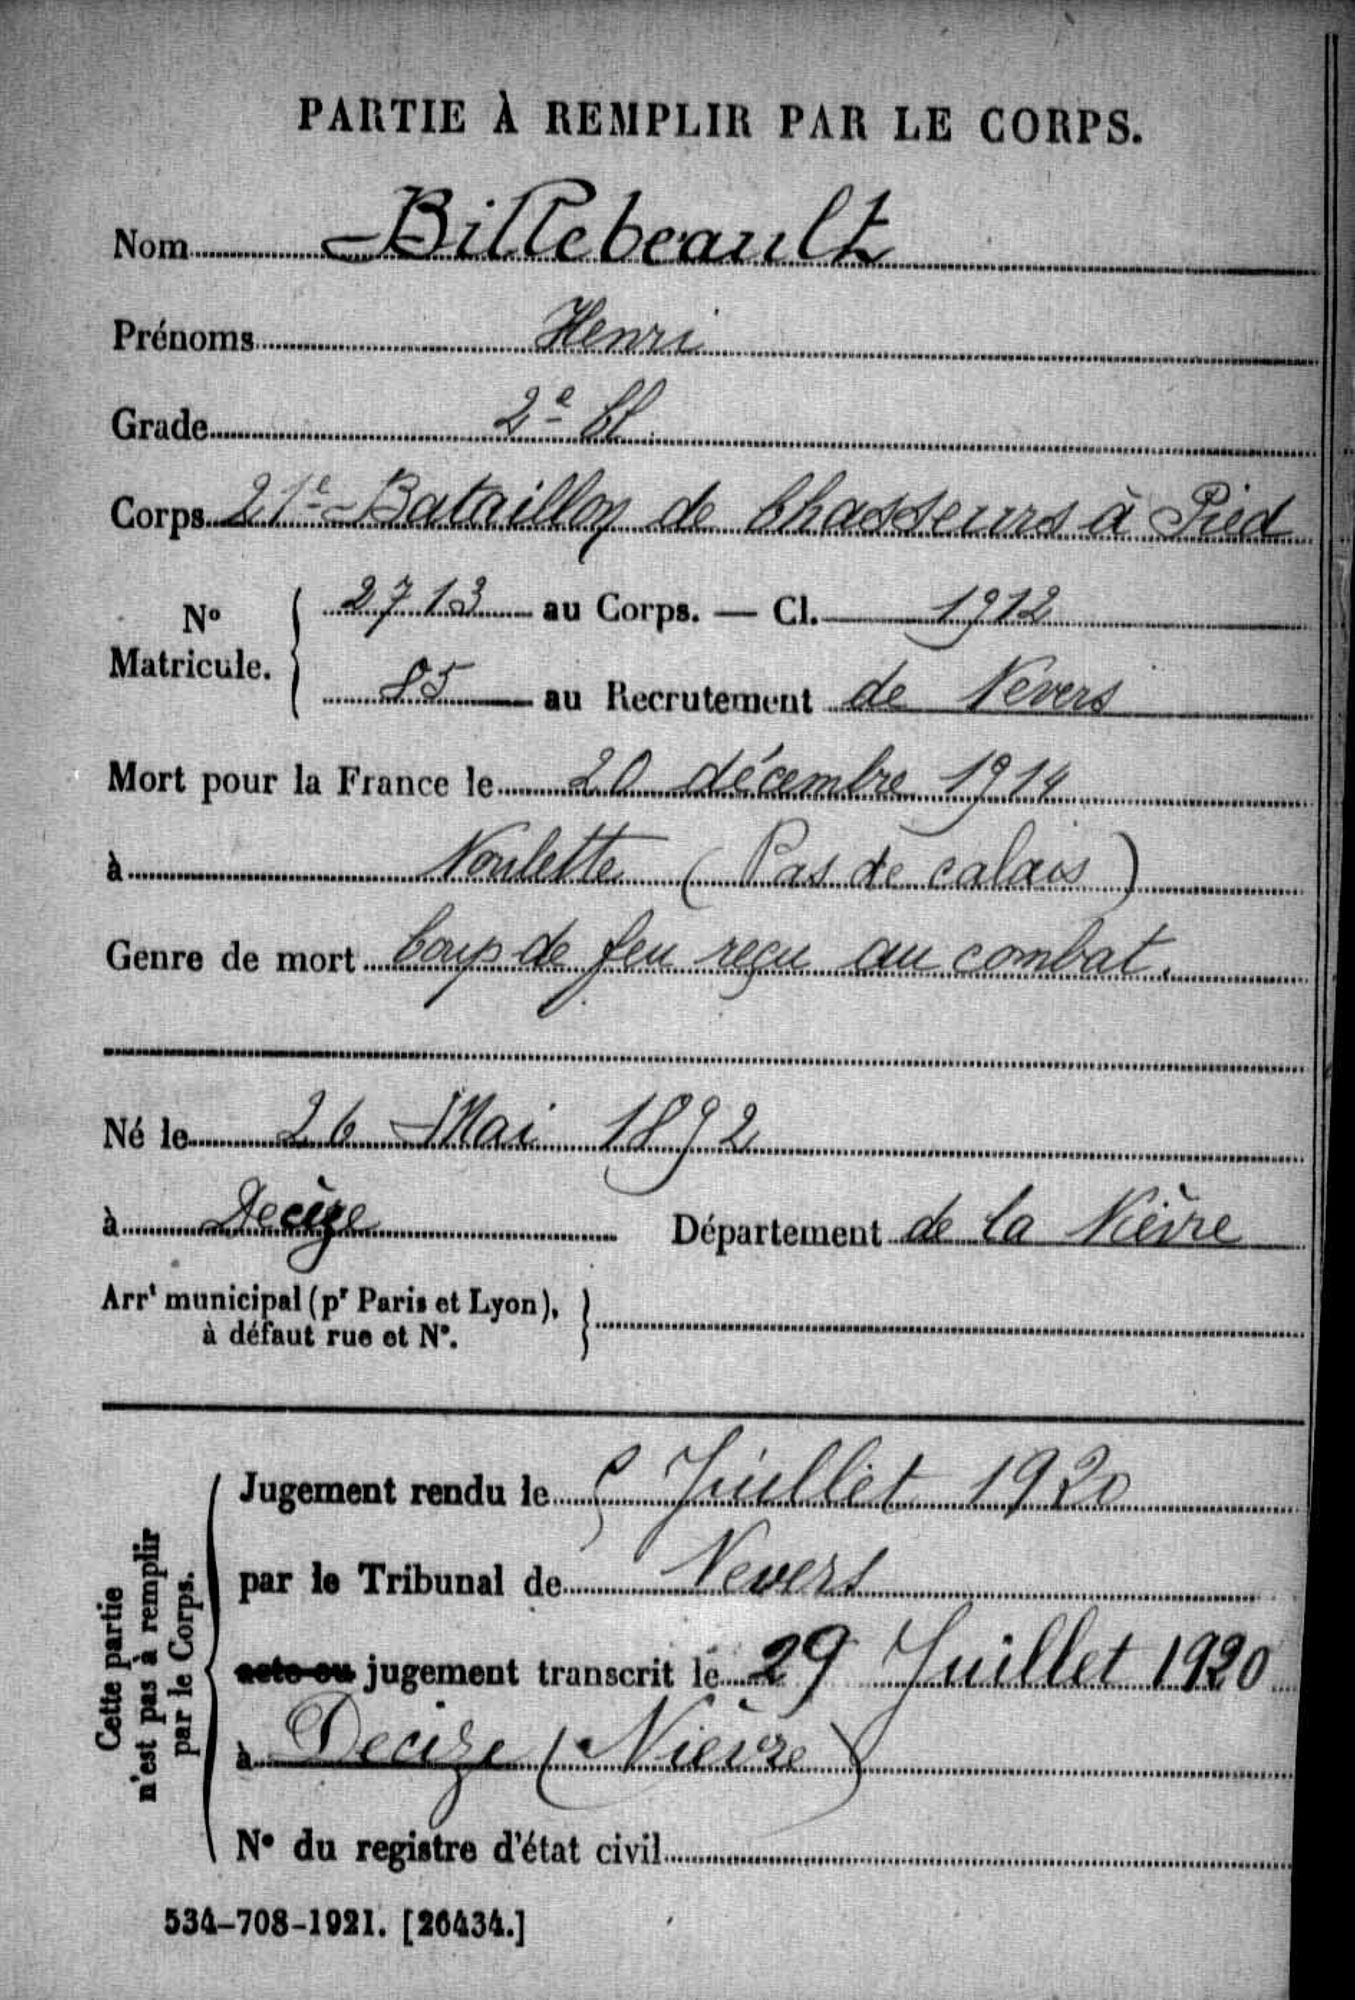 PARTIE À REMPLIR PAR LE CORPS.
Nom Billebeault
Prénoms Henri
Grade 2e Cl
Corps 21e Bataillon de Chasseurs à Pied
No Matricule. { 2713 au Corps. — Cl. 1912
85 au Recrutement de Nevers
Mort pour la France le 20 décembre 1914
à Noulette (Pas de calais)
Genre de mort Coup de feu reçu au combat.
Né le 26 Mai 1892
à Decize Département de la Nièvre
Arrt municipal (pr Paris et Lyon), à défaut rue et No. }
Cette partie n'est pas à remplir par le Corps.
Jugement rendu le Juillet 1920
par le Tribunal de Nevers
acte ou jugement transcrit le 29 Juillet 1920
à Decize (Nièvre)
No du registre d'état civil
534-708-1921. [26434.]